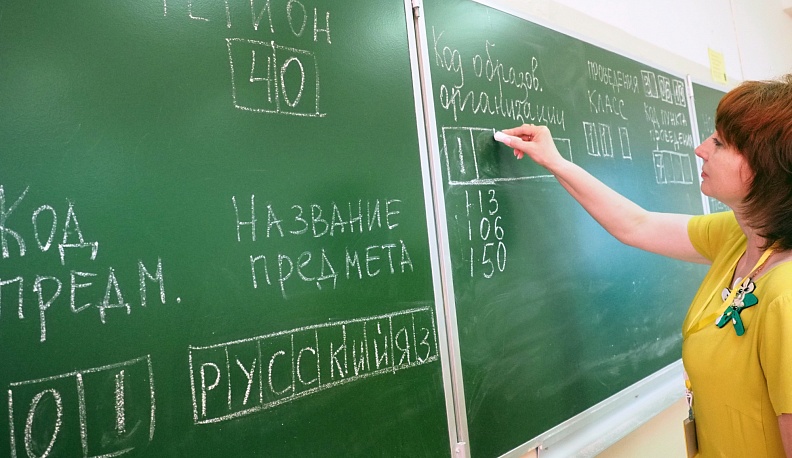 РЕГИОН
40
Код
предм.
01
НАЗВАНИЕ
предмета
РУССКИЙ ЯЗ
Код образов.
организации
1
113
106
150
проведения
КЛАСС
11
Код пункта
проведения
7